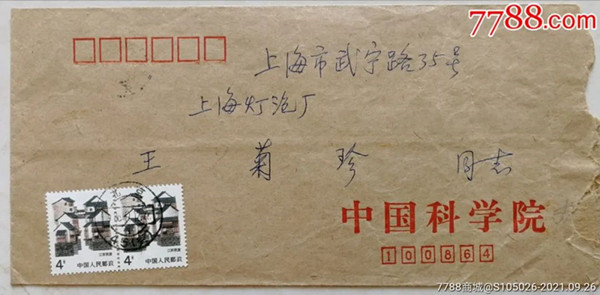 7788.com
上海市武宁路35号
上海灯泡厂
王菊珍同志
中国科学院
100864
4分
中国人民邮政
江苏民居
4分
中国人民邮政
江苏民居
7788商城@S105026-2021.09.26